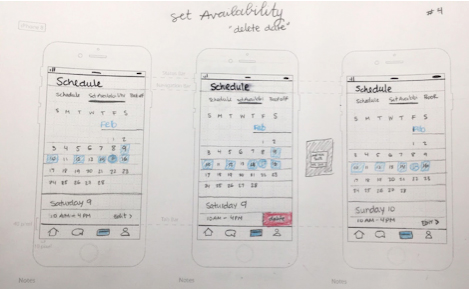 set Availability
"delete date"
#4
Schedule
Schedule Set Availability
S M T W T F S
Feb
1 2
3 4 5 6 7 8 9
10 11 12 13 14 15 16
17 18 19 20 21 22 23
24 25 26 27 28
Saturday 9
10 AM - 4 PM Edit >
Schedule
Schedule Set Availability
S M T W T F S
Feb
1 2
3 4 5 6 7 8 9
10 11 12 13 14 15 16
17 18 19 20 21 22 23
24 25 26 27 28
Saturday 9
10 AM - 4 PM Delete
Schedule
Schedule Set Availability
S M T W T F S
Feb
1 2
3 4 5 6 7 8 9
10 11 12 13 14 15 16
17 18 19 20 21 22 23
24 25 26 27 28
Sunday 10
10 AM - 4 PM Edit >
Notes
Notes
Notes